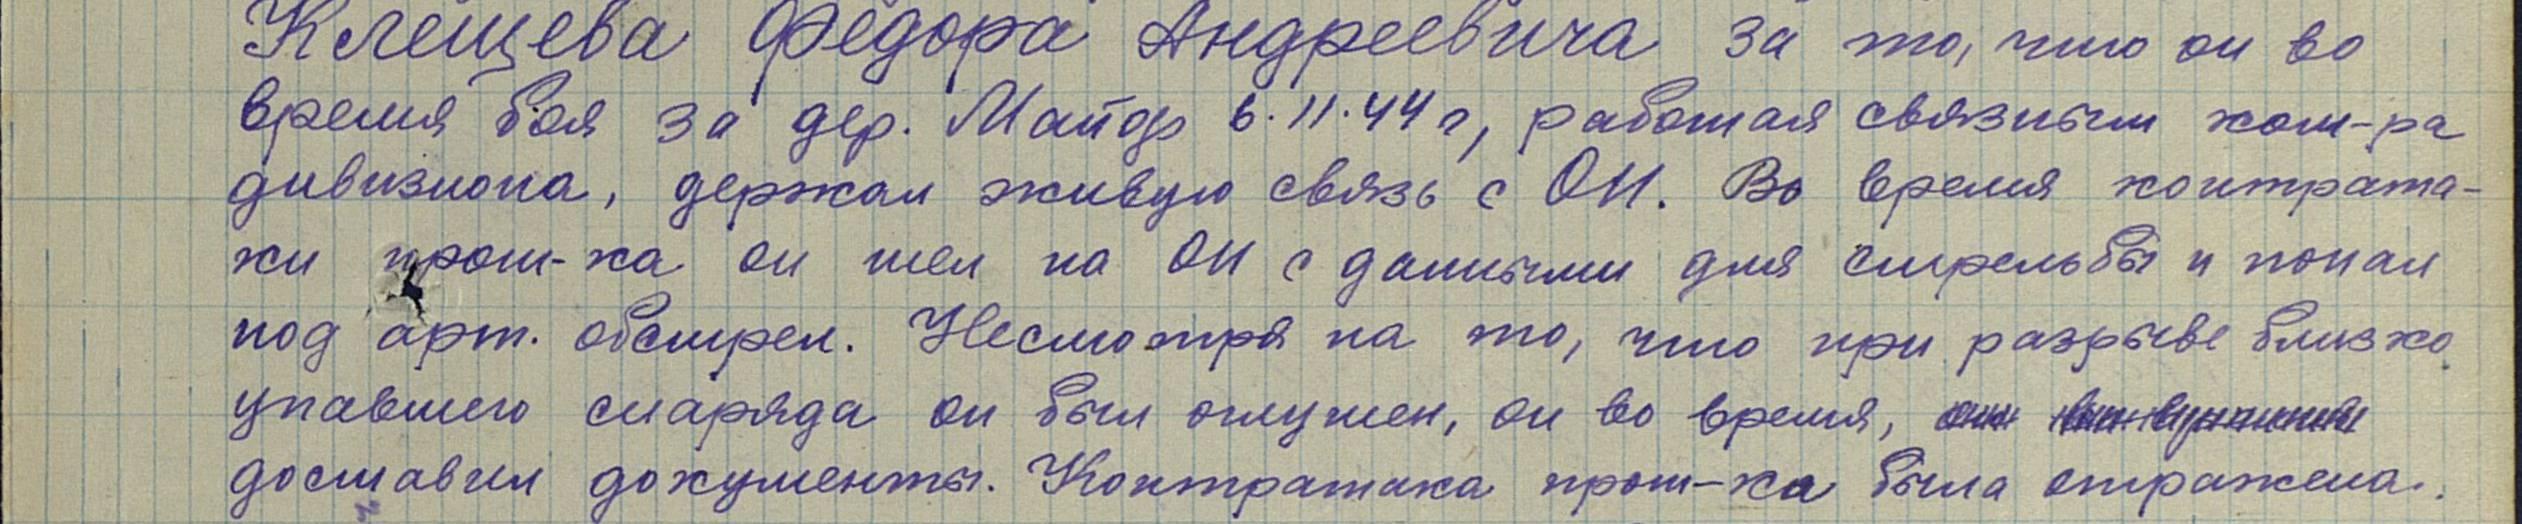 Клещева Федора Андреевича за то, что он во
время боя за дер. Майор 6.11.44 г, работая связным ком-ра
дивизиона, держал живую связь с ОП. Во время контрата-
ки прот-ка он шел на ОП с данными для стрельбы и попал
под арт. обстрел. Несмотря на то, что при разрыве близко
упавшего снаряда он был оглушен, он во время,
доставил документы. Контратака прот-ка была отражена.